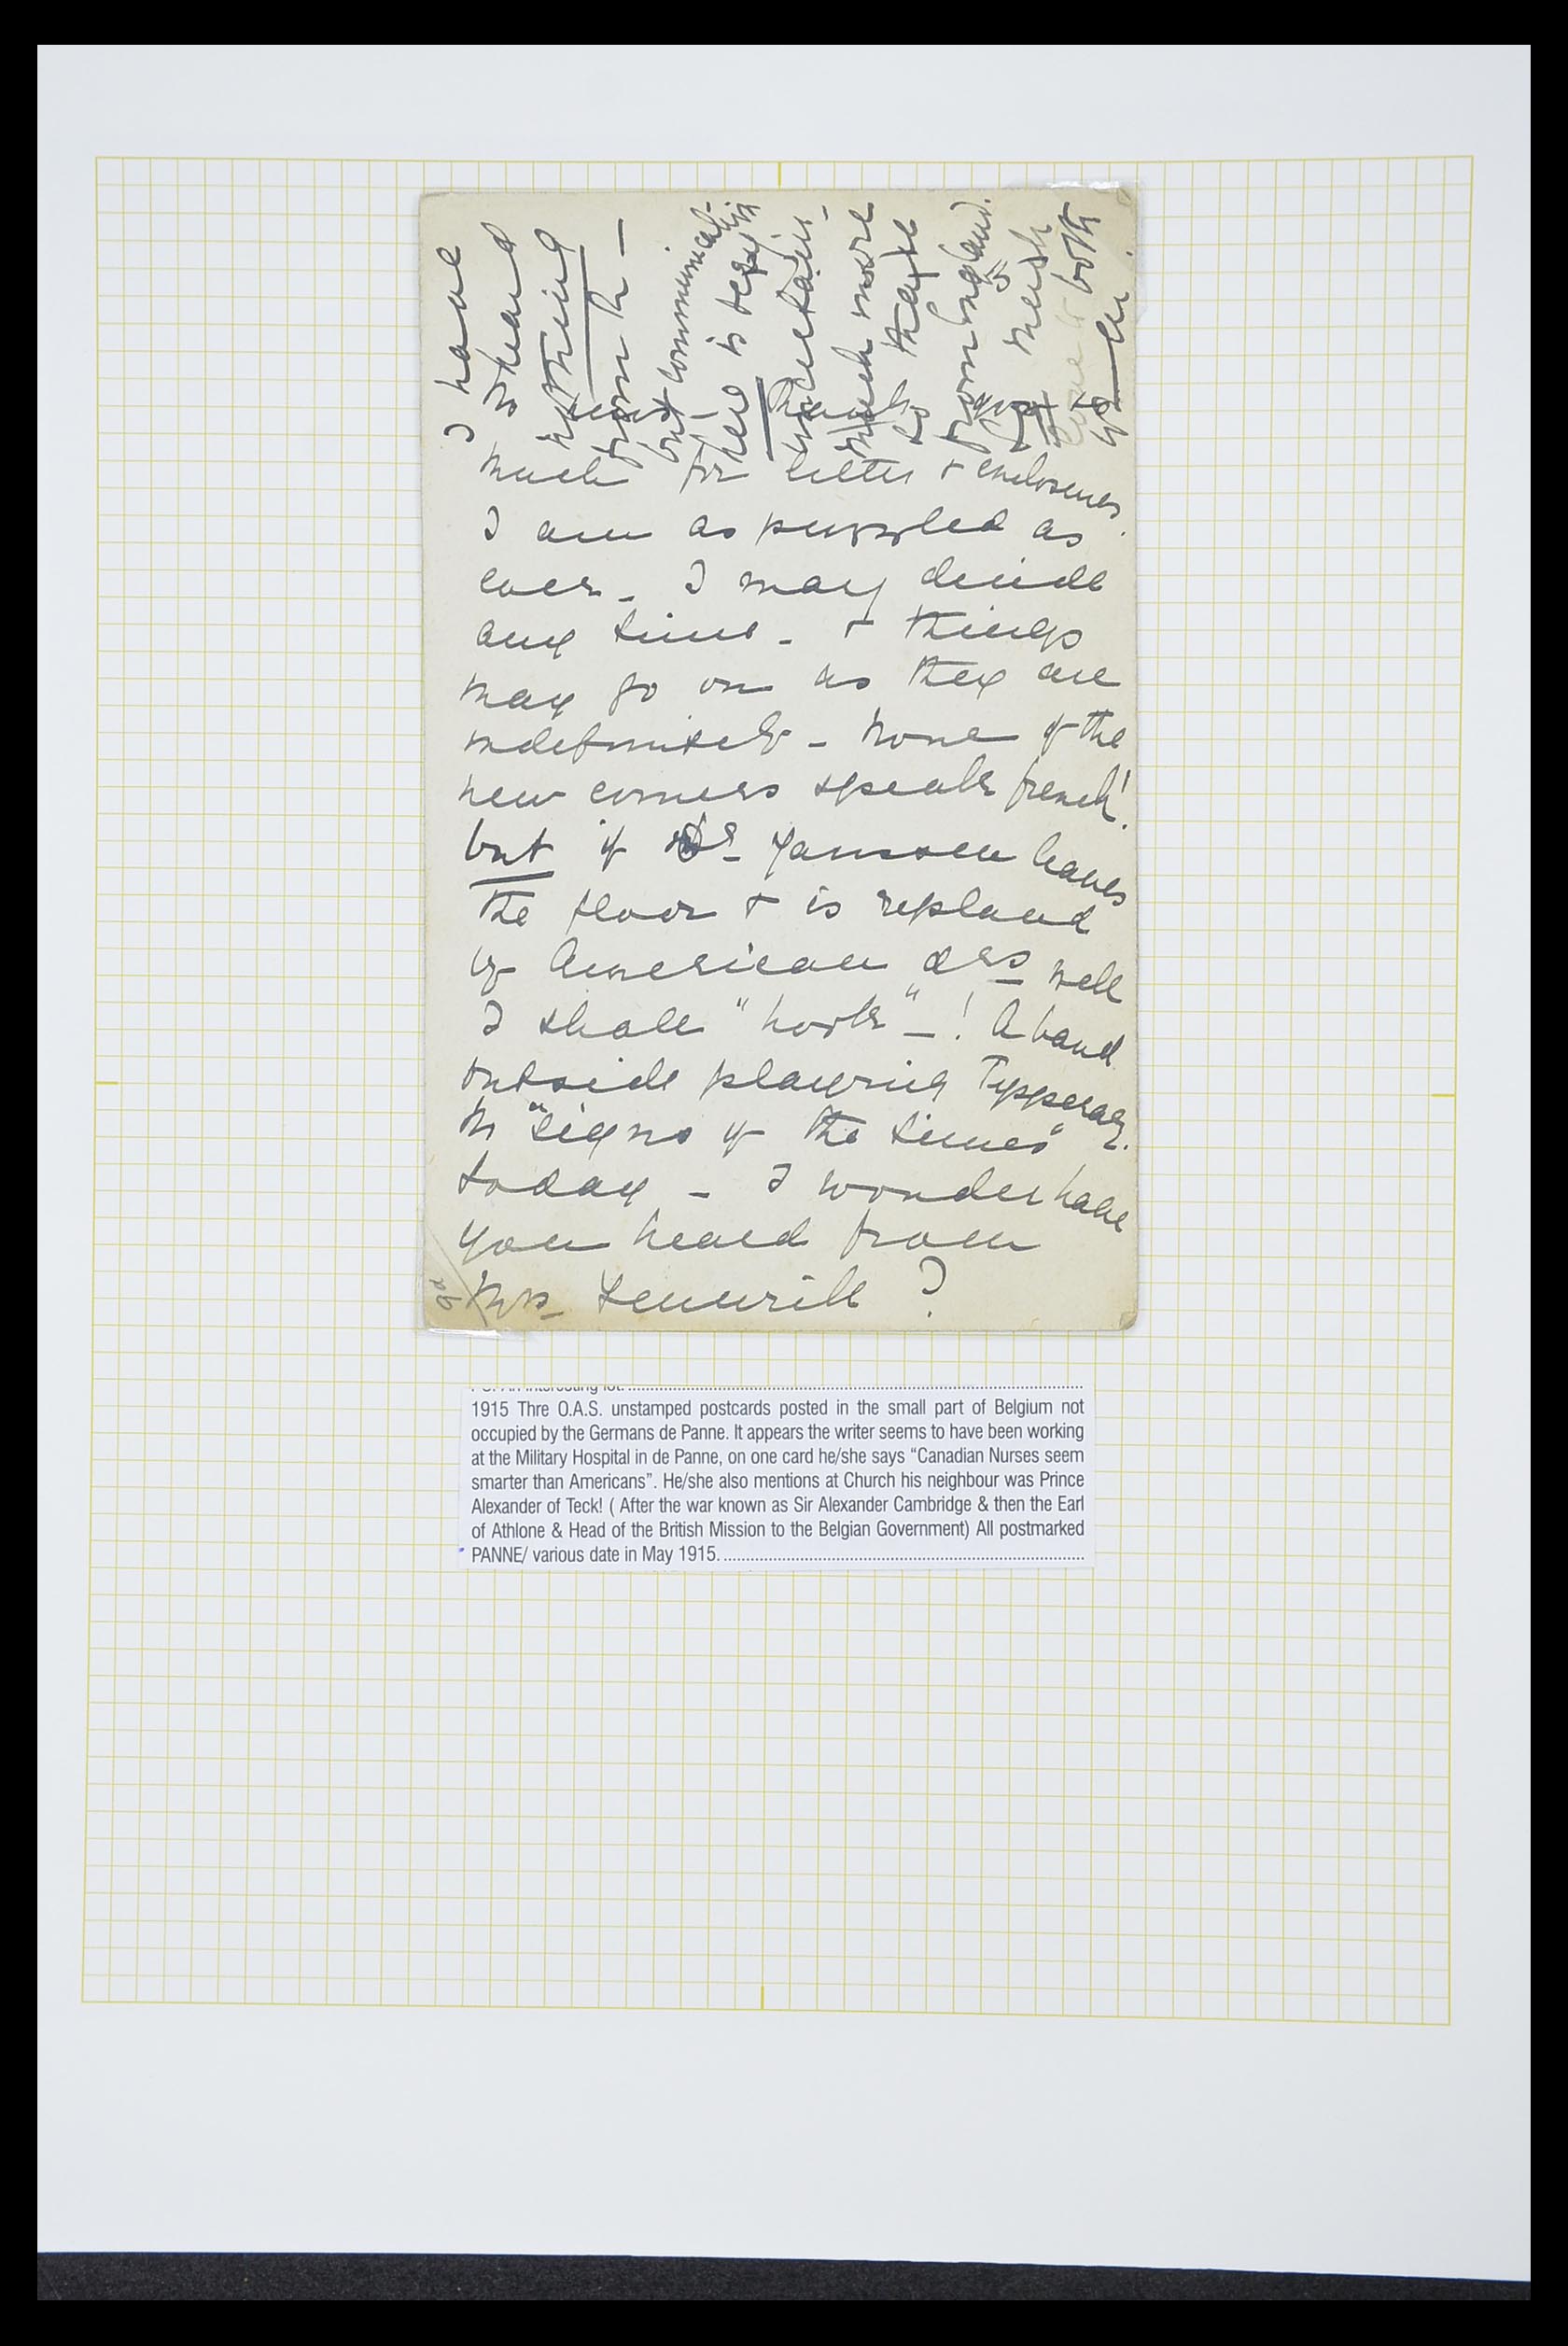 I have
heard
nothing
from
but communicat-
here is very
uncertain-
much more
so maybe
from England.
much
both
Thanks
much for letter & enclosures.
I am as puzzled as
ever - I may decide
any time - & things
may go on as they are
indefinitely - None of the
new comers speak french!
but if Dr - Janssen leaves
the floor & is replaced
by American drs well
I shall "hook" - ! A band
outside playing Typperary.
"signs of the times"
today - I wonder have
you heard from
Mrs ?
1915 Thre O.A.S. unstamped postcards posted in the small part of Belgium not
occupied by the Germans de Panne. It appears the writer seems to have been working
at the Military Hospital in de Panne, on one card he/she says “Canadian Nurses seem
smarter than Americans”. He/she also mentions at Church his neighbour was Prince
Alexander of Teck! ( After the war known as Sir Alexander Cambridge & then the Earl
of Athlone & Head of the British Mission to the Belgian Government) All postmarked
PANNE/ various date in May 1915.